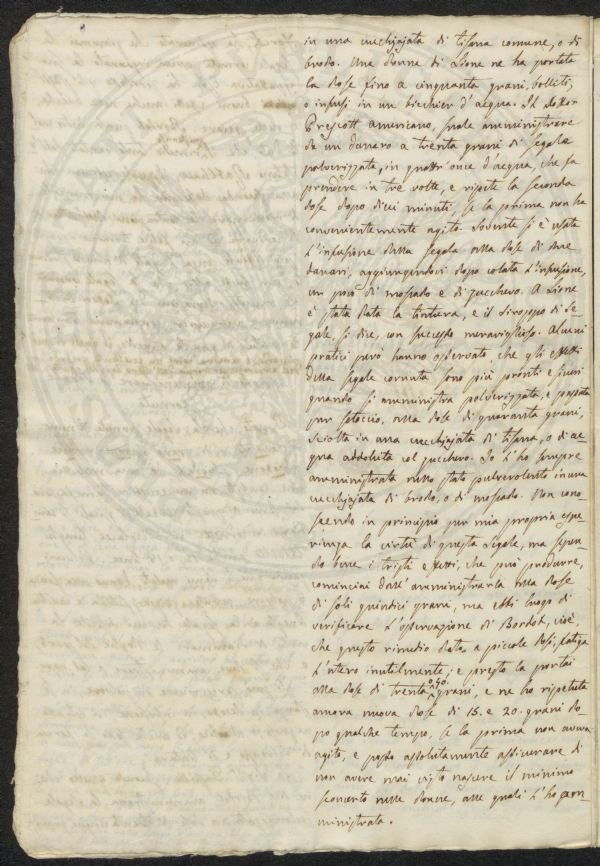 in una cucchiajata di tisana comune, o di
brodo. Una donna di Lione ne ha portata
la dose fino a cinquanta grani, bolliti,
o infusi in un bicchier d'acqua. Il dottor
Prescott americano, suole amministrare
da un danaro a trenta grani di segala
polverizzata, in quattr'once d'acqua, che fa
prendere in tre volte, e ripete la seconda
dose dopo dieci minuti, se la prima non ha
convenientemente agito. Sovente si è usata
l'infusione della segala alla dose di due
danari, aggiungendoci dopo colata l'infusione,
un poco di moscado e di zucchero. A Lione
è stata data la tintura, e il siroppo di se-
gale, si dice, con successo meraviglioso. Alcuni
pratici però hanno osservato, che gli effetti
della segale cornuta sono più pronti e sicuri
quando si amministra polverizzata, e passata
per setaccio, alla dose di quaranta grani,
sciolta in una cucchiajata di tisana, o di ac
qua addolcita col zucchero. Io l'ho sempre
amministrata nello stato pulverolento in una
cucchiajata di brodo, o di moscado. Non cono-
scendo in principio per mia propria espe-
rienza la virtù di questa segale, ma sapen-
do bene i tristi effetti, che può produrre,
cominciai dall'amministrarla alla dose
di soli quindici grani, ma ebbi luogo di
verificare l'osservazione di Bordot, cioè,
che questo rimedio dato a piccole dosi, fatiga
l'utero inutilmente; e presto la portai
alla dose di trenta o 40. grani, e ne ho ripetuta
ancora nuova dose di 15. e 20. grani do-
po qualche tempo, se la prima non aveva
agito, e posso assolutamente assicurare di
non avere mai visto nascere il minimo
sconcerto nelle donne, alle quali l'ho
ministrata.